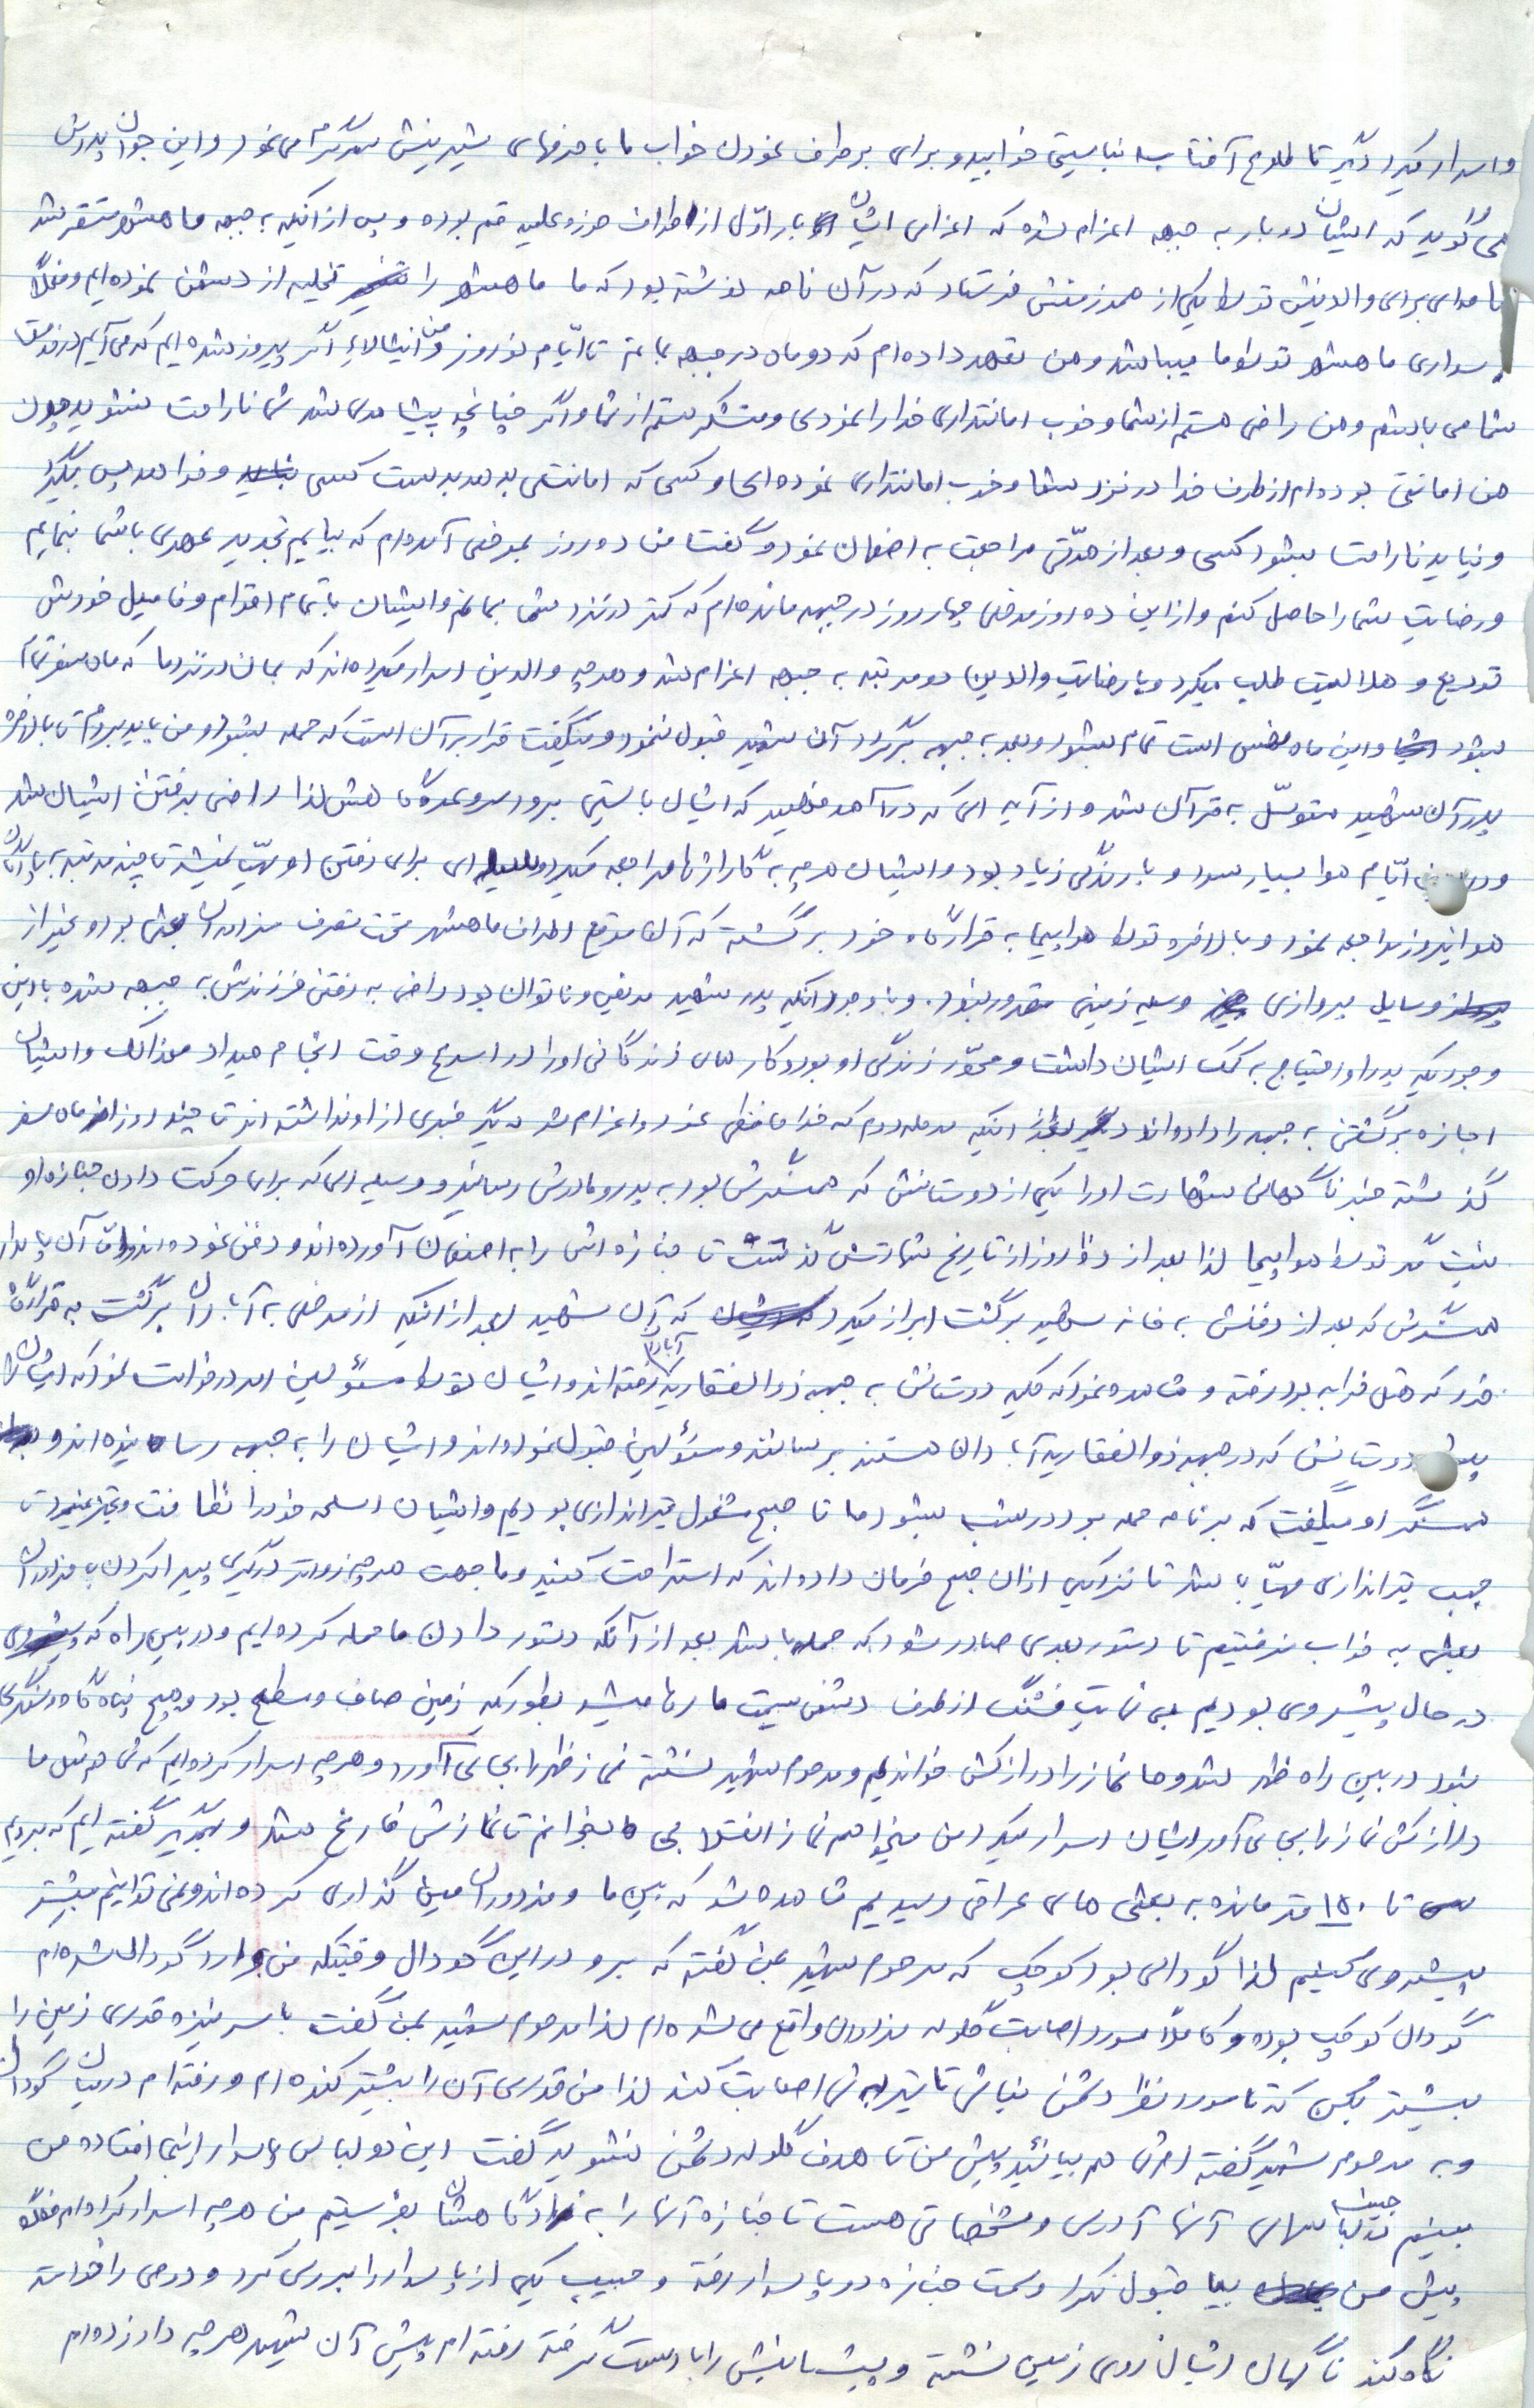 و اسرار میکرد دیگر تا طلوع آفتاب نبایستی خوابید و برای برطرف نمودن خواب ما با حرفهای شیرینش سرگرم می نمود و این جوان پدرش
می گوید که ایشان دو بار به جبهه اعزام شده که اعزامی ایشان بار اوّل از اطراف حوزه علمیه قم بوده و پس از انکیه به جبهه ماهشهر مستقر شد
نامه ای برای والدینش توسط یکی از همرزمنش فرستاد که در آن نامه نوشته بود که ما ماهشهر را تخلیه از دشمن نموده ایم و فعلاً
پاسداری ماهشهر توسط ما میباشد و من تعهد داده ام که دو ماه در جبهه بمانم تا ایّام نوروز و من انشالاء اگر پیروز شده ایم که می آیم در خدمت
شما می باشم و من راضی هستم از شما و خوب امانتداری خدا را نمودی و متشکرستم از شما و اگر چنانچه پیشامدی شد شما ناراحت نشوید چون
من امانتی بوده ام از طرف خدا در نزد شما و خوب امانتداری نموده اید و کسی که امانتی بدهد بدست کسی و خواهد پس بگیرد
و نباید ناراحت بشود کسی و بعد از مدّتی مراجعت به اصفهان نمود و گفت من ده روز بمرخصی آمده ام که بیایم تجدید عهدی با شما بنمایم
و رضایت شما را حاصل کنم و از این ده روز مرخصی چهار روز در جبهه مانده ام که کمتر در نزد شما بمانم و ایشان با تمام اقوام و فامیل خودش
تودیع و هلالیت طلب میکرد و با رضایت والدین دو مرتبه به جبهه اعزام شد و هر چه والدین اسرار میکرده اند که بمان در نزد ما که ماه صفر تمام
بشود و این ماه نحس است تمام بشود و بعد به جبهه برگرد آن شهید قبول ننمود و میگفت قرار بر آن است که حمله بشود و من باید بروم تا بالاخره
پدر آن شهید متوسّل به قرآن شد و از آیه ای که درآمد فهمید که ایشان بایستی برود لذا راضی برفتن ایشان شد
و در این ایّام هوا بسیار سرد و بارندگی زیاد بود و ایشان هر چه به گاراژها مراجعه میکرد وسیله ای برای رفتن او مهیّا نمیشد تا چند مرتبه به پادگان
هوانیروز مراجعه نمود و بالاخره توسط هواپیما به قرارگاه خود برگشته که آن موقع اطراف ماهشهر تحت تصرف مزدوران بعثی بود و غیر از
وسایل پروازی وسیه زمینی مقدور نبود. و با وجود انکیه پدر شهید مریض و ناتوان بود راضی به رفتن فرزندش به جبهه شده با این
وجودیکه پدر او احتیاج به کمک ایشان داشت و محوّر زندگی او بود و کارهای زندگانی او را در اسرع وقت انجام میداد معذالک و ایشان
اجازه برگشتن به جبهه را داد و اما بعد از انکیه مرحله دوم که خداحافظی نمود و اعزام شد دیگر خبری از او نداشته اند تا چند روز از ماه صفر
گذشته خبر ناگهانی شهادت او را یکی از دوستانش که همسنگرش بود به پدر و مادرش رسانید و وسیله ای که برای حرکت دادن جنازه او
نیست مگر توسط هواپیما لذا بعد از روز از تاریخ شهادتش گذشت تا جنازه اش را به اصفهان آورده اند و دفن نموده اند آن پاسدار
همسنگرش که بعد از دفنش به خانه شهید برگشت ابراز میکرد که آن شهید بعد از انکیه از مرخصی به آبادان برگشت به قرارگاه
خود که هتل خرابه بود رفته و مشاهده نمود که کلیه دوستانش به جبهه ذوالفقاریه آبادان رفته اند و ایشان توسط مسئولین امر درخواست نمود که ایشان را
پیش دوستانش که در جبهه ذوالفقاریه آبادان هستند برسانند و مسئولین قبول نموده اند و ایشان را به جبهه رسانیده اند و
همسنگر او میگفت که برنامه حمله بود در شب بشود ما تا صبح مشغول تیراندازی بودیم و ایشان اسلحه خود را نظافت و تمیز مینمود تا
جهت تیراندازی مهیّا باشد تا نزدیکی اذان صبح فرمان داده اند که استراحت کنید و ما جهت هر چه زودتر درگیری پیدا کردن با مزدوران
بعثی به خواب نرفتیم تا دستور بعدی صادر شود که حمله باشد بعد از آنکه دستور دادن ما حمله کرده ایم و در بین راه که
در حال پیشروی بودیم بی نهایت فشنگ از طرف دشمن بسمت ما رها میشد بطوریکه زمین صاف و مسطح بود و هیچ پناهگاه و سنگری
نبود در بین راه ظهر شد و ما نماز را دراز کش خواندیم و مرحوم شهید نشسته نماز ظهر را بجا می آورد و هر چه اسرار کرده ایم که شما هم مثل ما
دراز کش نماز را بجا می آور ایشان اسرار میکرد من میخواهم نماز انقلابی بخوانم تا نمازش فارغ شد و بیکدیگر گفته ایم که برویم
تا ۱۵۰ متر مانده به بعثی های عراقی رسیدیم مشاهده شد که بین ما و مزدوران مین گذاری کرده اند و نمی توانیم بیشتر
پیشروی کنیم لذا گودالی بود کوچک که مرحوم شهید بمن گفته که برو در این گودال وقتیکه من وارد گودال شده ام
گودال کوچک بوده و کاملاً مورد اصابت گلوله مزدوران واقع می شده ام لذا مرحوم شهید بمن گفت با سر نیزه قدری زمین را
بیشتر بکن که تا مورد نظر دشمن نباشی تا تیر به شما اصابت کند لذا من قدری آن را بیشتر کنده ام و رفته ام درمیان گودال
و به مرحوم شهید گفته ام شما هم بیائید پیش من تا هدف گلوله دشمن نشوید گفت این دو لباس پاسدار اینجا افتاده من
ببینم جیب لباسهای آنها آدرسی و مشخصاتی هست تا جنازه آنها را به بفرستیم من هر چه اسرار کرده ام فعلاً
پیش من بیا قبول نکرد و سمت جنازه دو پاسدار رفته و جیب یکی از پاسدار را بررسی کرد و دومی را خواسته
نگاه کند ناگهان ایشان روی زمین نشسته و پیشانیش را با دست گرفته رفته ام پیش آن شهید هر چه داد زده ام